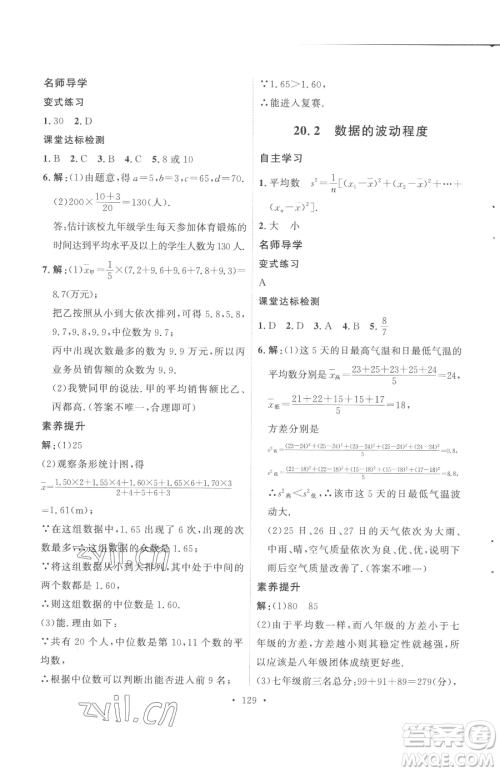 名师导学
变式练习
1. 30　2. D
课堂达标检测
1. B　2. C　3. B　4. B　5. 8或10
6. 解：(1)由题意，得b=18，c=65，d=70.
(2)200×(10+3)/20=130(人).
答：估计该校九年级学生每天参加体育锻炼的
时间达到平均水平及以上的学生人数为130人.
7. 解：(1)x̄甲=1/5×(7.2+9.6+9.6+7.8+9.3)=
8.7(万元).
把乙按照从小到大依次排列，可得5.8，5.8，
9.7，9.8，9.9，中位数为9.7.
丙中出现次数最多的是9.9万元，所以丙业务员销售额的众数为9.9.
(2)我赞同甲的说法.甲的平均销售额比乙、
丙都高.(答案不唯一)
素养提升
解：(1)25
(2)观察条形统计图，得
x̄=(1.50×2+1.55×4+1.60×5+1.65×6+1.70×3)/(2+4+5+6+3)=
1.61(m)；
∵在这组数据中，1.65出现了6次，出现的次数
最多，∴这组数据的众数为1.65；
将这组数据从小到大排列，其中处于中间的
两个数都是1.60，
则这组数据的中位数为1.60.
(3)能.理由如下：
∵共有20个人，中位数是第10，11个数的平
均数，
∴根据中位数可以判断出能否进入前9名；
∵1.65＞1.60，
∴能进入复赛.
20.2　数据的波动程度
自主学习
1. 平均数　s²=1/n[(x₁-x̄)²+(x₂-x̄)²+…+
(xₙ-x̄)²]
2. 大　小
名师导学
变式练习
A
课堂达标检测
1. D　2. A　3. D　4. B　5. 8/7
6. 解：(1)这5天的日最高气温和日最低气温的
平均数分别是x̄高=(23+25+23+25+24)/5=
24，x̄低=(21+22+15+15+17)/5=18，
方差分别是
s²高=((23-24)²+(25-24)²+(23-24)²+(25-24)²+(24-24)²)/5=0.8，
s²低=((21-18)²+(22-18)²+(15-18)²+(15-18)²+(17-18)²)/5=8.8，
∴s²高＜s²低，∴该市这5天的日最低气温波
动大.
(2)25日、26日、27日的天气依次为大雨、
中雨、晴，空气质量依次为良、优、优，说明下
雨后空气质量改善了.(答案不唯一)
素养提升
解：(1)80　85
(2)由于平均数一样，而八年级的方差小于七
年级的方差，方差越小，则其稳定性越强，所以
应该是八年级团体成绩更好些.
(3)七年级前三名总分：99+91+89=279(分)，
·129·
zyjl.cn
zyjl.cn
答案圈